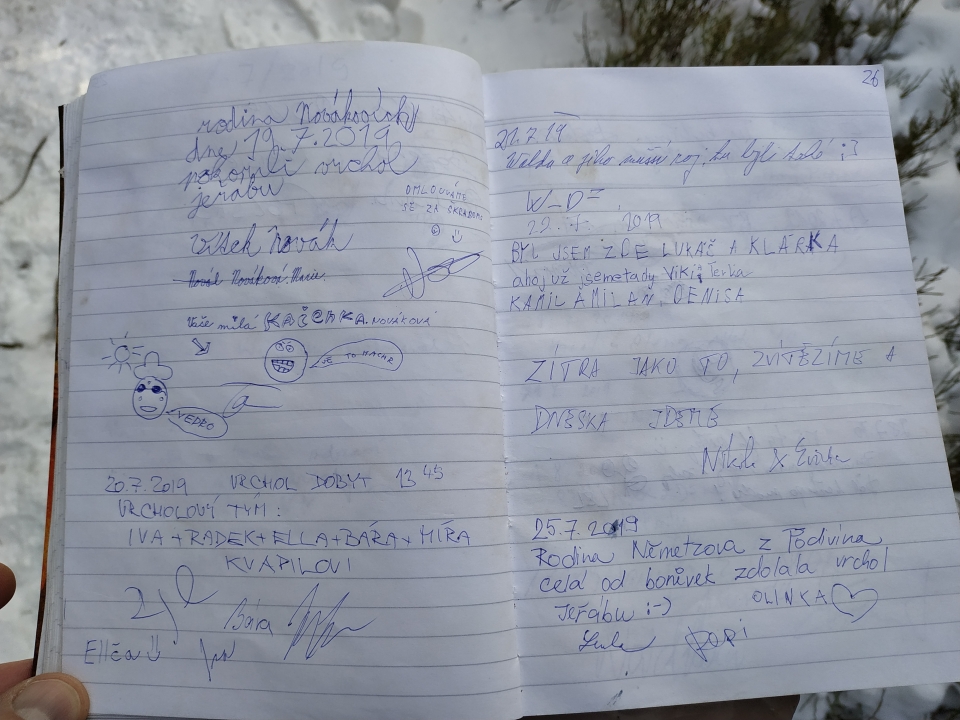 rodina Nováko
dne 19.7.2019
pokořili vrchol
jeřábu
OMLOUVÁME
SE ZA
Novák
Nováková Marie
Vaše milá KAČENKA NOVÁKOVÁ
JE TO MAKAČ
VEDRO
20.7.2019 VRCHOL DOBYT 13 45
VRCHOLOVÝ TÝM:
IVA+RADEK+ELLA+BÁRA+MÍRA
KVAPILOVI
Bára
Ellča
26
21.7 19
Valda a jeho byli tady ;3
W-D=
22. 2019
BYL JSEM ZDE LUKÁČ A KLÁRKA
ahoj už jsmetady Viki Terka
KAMIL AMILAN. DENISA
ZÍTRA JAKO TO, ZVÍTĚZÍME A
DNESKA JDEME
Nikola & Evička
25.7.2019
Rodina Němetzova z Podivína
celá od bonivek zdolala vrchol
Jeřábu :-) OLINKA
PAPI